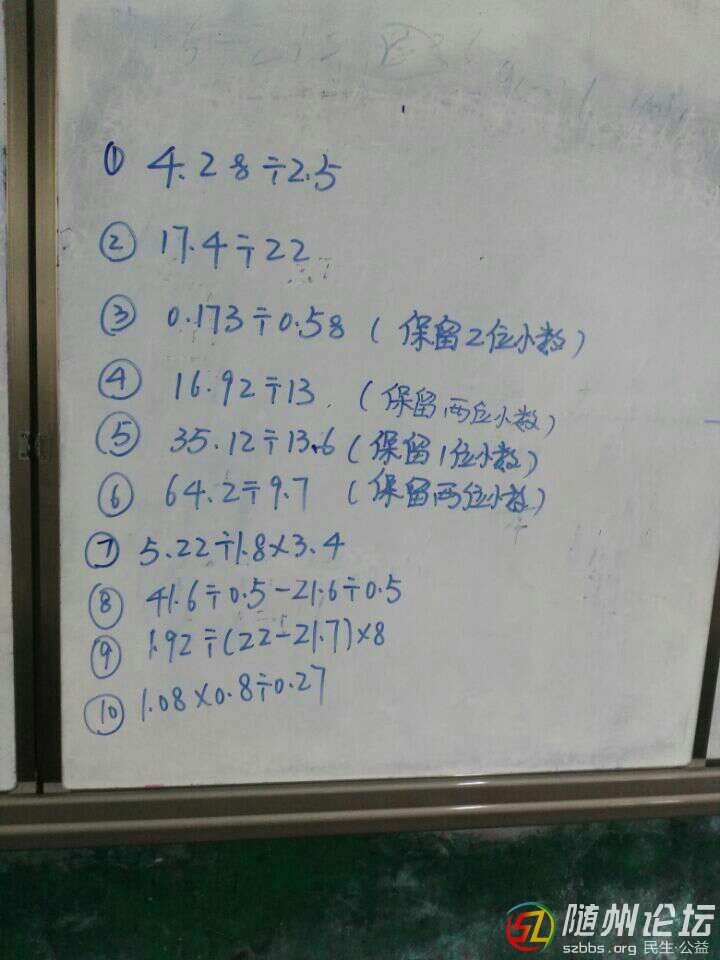 ① 4.28÷2.5
② 17.4÷22
③ 0.173÷0.58 (保留2位小数)
④ 16.92÷13 (保留两位小数)
⑤ 35.12÷13.6 (保留1位小数)
⑥ 64.2÷9.7 (保留两位小数)
⑦ 5.22÷1.8×3.4
⑧ 41.6÷0.5-21.6÷0.5
⑨ 1.92÷(22-21.7)×8
⑩ 1.08×0.8÷0.27
随州论坛
szbbs.org 民生·公益